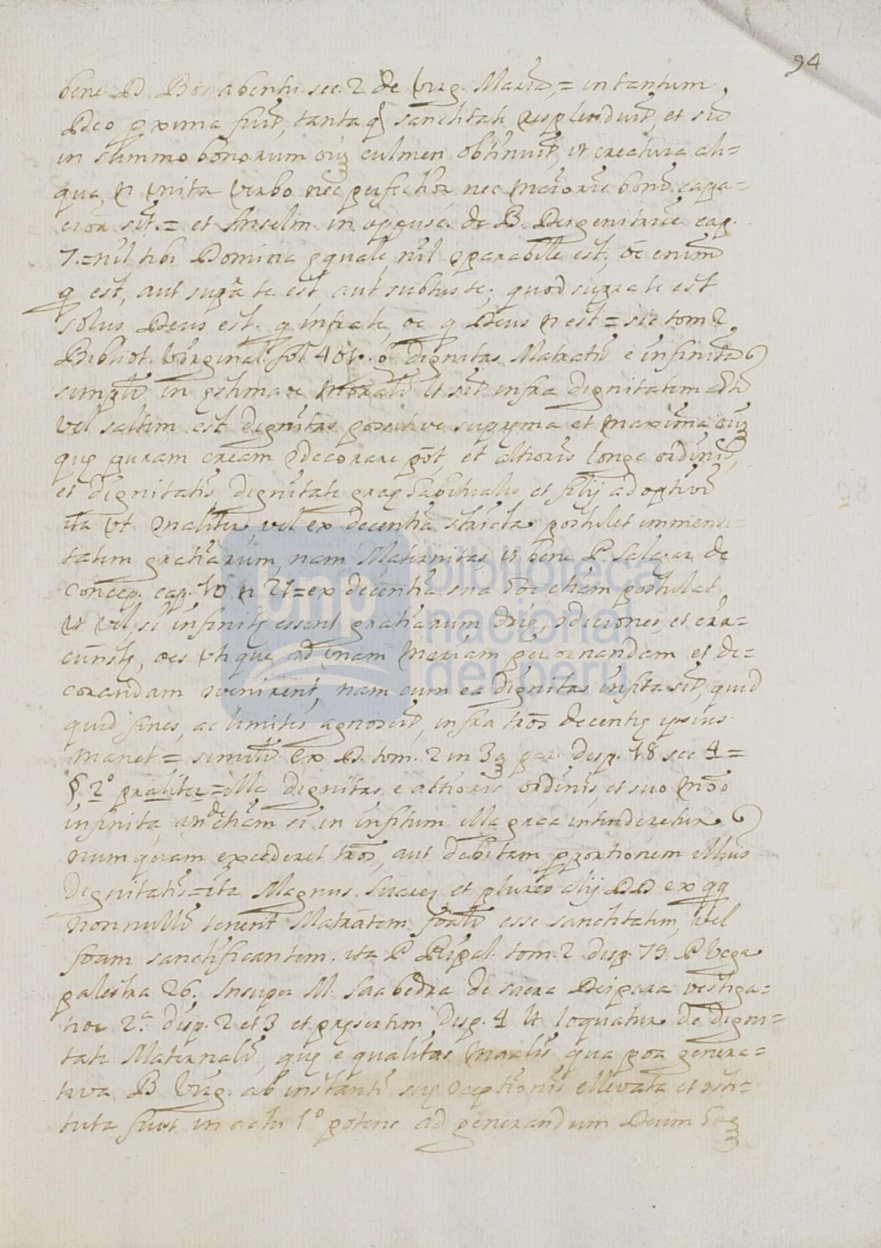 94
bene D. Bonabentu. sec. 2 de Virg. Maria, = in tantum
Deo proxima fuit, tanta q3 sanctitate resplenduit, et sic
in summo bonorum culmen obtinuit, ut creatura ali=
qua, n unita Verbo nec perfectior, nec maioris boni capa=
cior sit. = et Anselm. in opusc. de B. Deigenitrice cap.
7. = nil tibi Domina equale nil parabile est, oe enim
q est, aut supra te est aut subtus te; quod supra te est
solus Deus est. q infra te, oe q Deus n est = sic tom 2
Bibliot. Virginal. fol 401. dignitas Matratis e infinita
simplr in estimaoe morali ut sit infra dignitatem
Vel saltim est dignitas positive suprema et maxima
que puram cream decorare pot, et altioris longe ordinis,
et dignitatis, dignitate grae habitualis, et filij adoptivi
ita ut naliter vel ex decentia stricta postulet immensi=
tatem gratiarum, nam Maternitas ut bene P. Salazar de
Concep. cap. 10 n 21 = ex decentia sua etiam postulat
ut vel si infinite essent gratiarum
oes utique ad unam Mariam perornandam et de=
corandam venirent, nam cum ea dignitas infita sit, quid
quid fines, ac limites agnoscit, infra tros decentie ipsius
manet = similr Ex D. tom. 2 in 3 par. disp. 18 sec 4 =
§ 2º praliter = illa dignitas e altioris ordinis, et suo mo
infinita, etiam si in infitum illa graa intenderetur
num quam excederet tros, aut debitam pportionem illius
Dignitatis = ita Magnus Suarez et plures alij DD ex qq
nonnulli tenent Matratem foralr esse sanctitatem, Vel
foram sanctificantem. ita P Ripal. tom. 2 disp. 79. P Vega
palestra 26. Insuper M. Saabedra de sacra Deipara vestiga=
tioe 2.ª disp. 2 et 3 et presertim disp. 4 Ut loquatur de digni=
tate Maternali, que e qualitas moralis qua poa genera=
tiva B. Virg. ab instanti sue ceptionis ellevata et sti=
tuta fuit in actu 1º potens ad generandum Deum
biblioteca
nacional
del perú
bnp